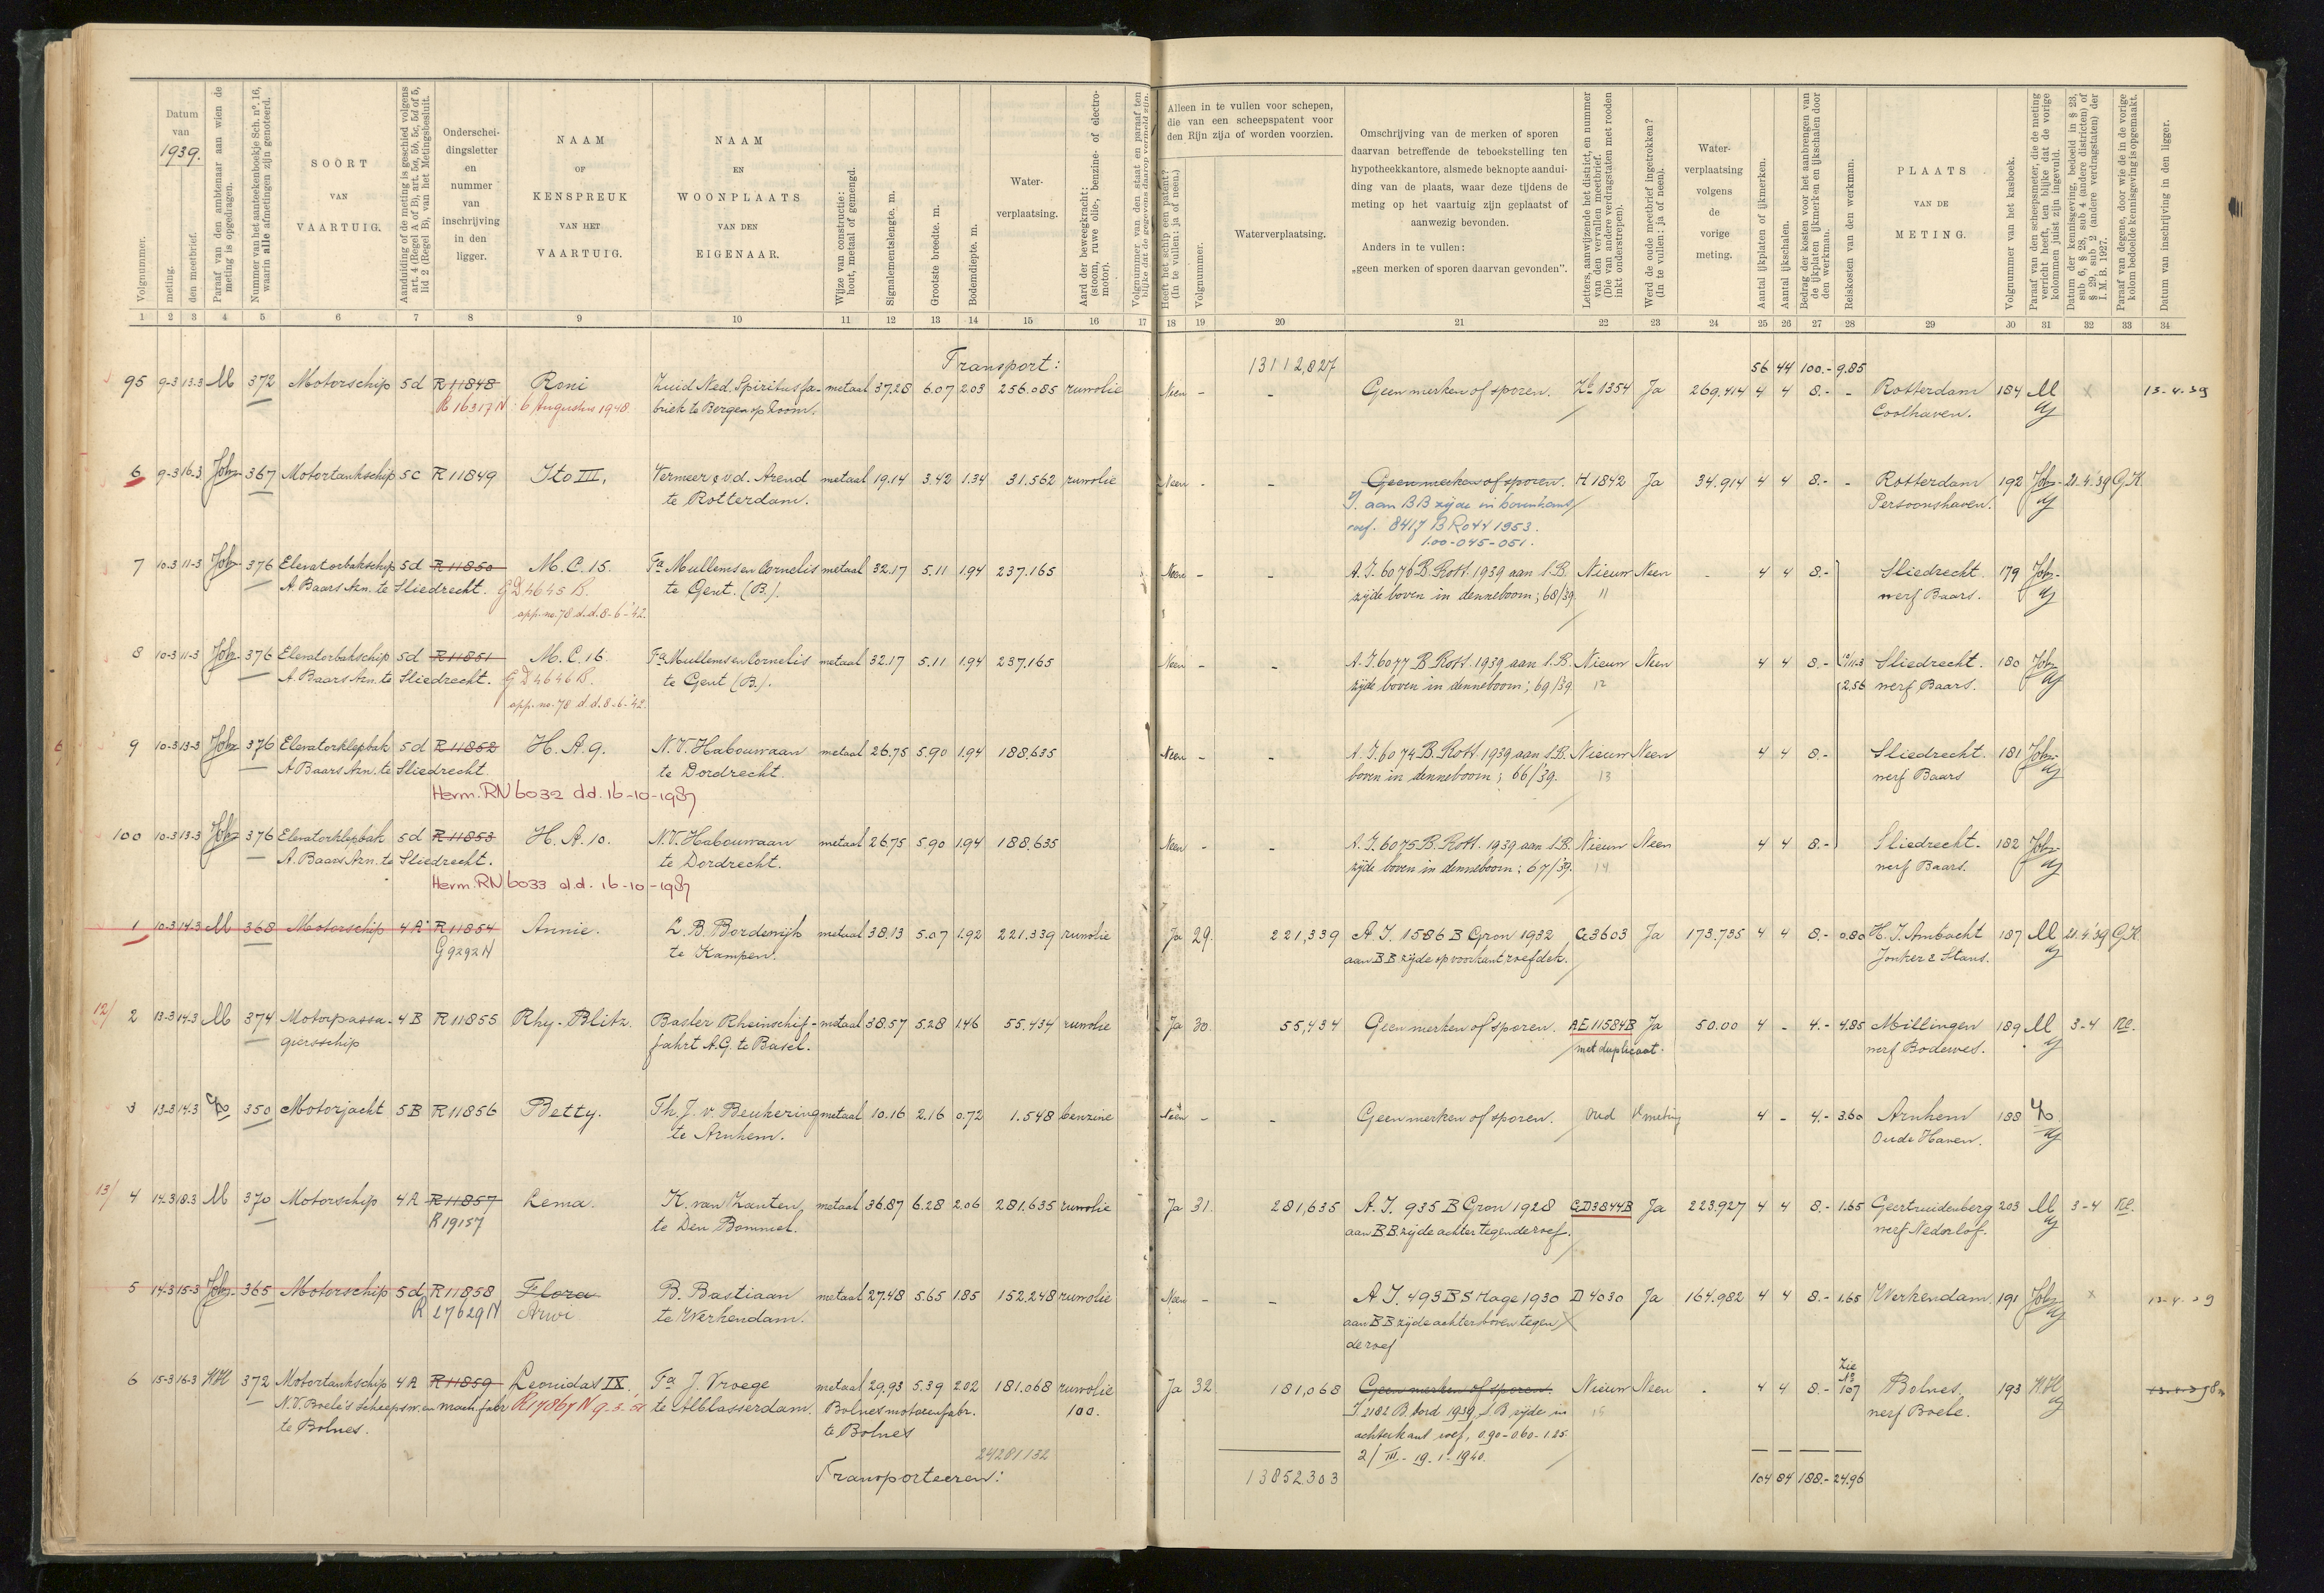 Volgnummer.
Datum van 1939.
meting.
den meetbrief.
Paraaf van den ambtenaar aan wien de meting is opgedragen.
Nummer van het aanteekenboekje Sch. nº. 16, waarin alle afmetingen zijn genoteerd.
SOORT VAN VAARTUIG.
Aanduiding of de meting is geschied volgens art. 4 (Regel A of B), art. 5a, 5b, 5c, 5d of 5, lid 2 (Regel B), van het Metingsbesluit.
Onderschei-
dingsletter
en
nummer
van
inschrijving
in den
ligger.
NAAM OF KENSPREUK VAN HET VAARTUIG.
NAAM EN WOONPLAATS VAN DEN EIGENAAR.
Wijze van constructie: hout, metaal of gemengd.
Signalementslengte. m.
Grootste breedte. m.
Bodemdiepte. m.
Water-
verplaatsing.
Aard der beweegkracht: (stoom, ruwe olie-, benzine- of electro-motor).
Volgnummer van den staat en paraaf ten blijke dat de gegevens daarop vermeld zijn.
Alleen in te vullen voor schepen,
die van een scheepspatent voor
den Rijn zijn of worden voorzien.
Heeft het schip een patent? (In te vullen: ja of neen.)
Volgnummer.
Waterverplaatsing.
Omschrijving van de merken of sporen
daarvan betreffende de teboekstelling ten
hypotheekkantore, alsmede beknopte aandui-
ding van de plaats, waar deze tijdens de
meting op het vaartuig zijn geplaatst of
aanwezig bevonden.
Anders in te vullen:
„geen merken of sporen daarvan gevonden".
Letters, aanwijzende het district, en nummer van den vervallen meetbrief. (Die van andere verdragstaten met rooden inkt onderstrepen).
Werd de oude meetbrief ingetrokken? (In te vullen: ja of neen).
Water-
verplaatsing
volgens
de
vorige
meting.
Aantal ijkplaten of ijkmerken.
Aantal ijkschalen.
Bedrag der kosten voor het aanbrengen van de ijkplaten ijkmerken en ijkschalen door den werkman.
Reiskosten van den werkman.
PLAATS VAN DE METING.
Volgnummer van het kasboek.
Paraaf van den scheepsmeter, die de meting verricht heeft, ten blijke dat de vorige kolommen juist zijn ingevuld.
Datum der kennisgeving, bedoeld in § 23, sub 6, § 28, sub 4 (andere districten) of § 29, sub 2 (andere verdragstaten) der I. M. B. 1927.
Paraaf van degene, door wie de in de vorige kolom bedoelde kennisgeving is opgemaakt.
Datum van inschrijving in den ligger.
1 2 3 4 5 6 7 8 9 10 11 12 13 14 15 16 17 18 19 20 21 22 23 24 25 26 27 28 29 30 31 32 33 34
Transport: 13112,827 56 44 100.- 9.85
95 9-3 13-3 M 372 Motorschip 5d R 11848 Roni Zuid Ned. Spiritusfa- metaal 37.28 6.07 2.03 256.085 ruwolie Neen - - Geen merken of sporen. Zb 1354 Ja 269.414 4 4 8.- - Rotterdam 184 M x 13-4-39
R 16317 N 6 Augustus 1948 briek te Bergen op Zoom. Coolhaven.
6 9-3 16-3 Joh 367 Motortankschip 5c R 11849 Ito III, Vermeer & v.d. Arend metaal 19.14 3.42 1.34 31.562 ruwolie Neen - - Geen merken of sporen. H 1842 Ja 34.914 4 4 8.- - Rotterdam 192 Joh 21-4'39 GK
te Rotterdam. J. aan BB zijde in bovenkant Persoonshaven.
roef. 8417 B Rott 1953.
1.00-045-051.
7 10-3 11-3 Joh 376 Elevatorbakschip 5d R 11850 M.C. 15. Fa Mullems en Cornelis metaal 32.17 5.11 1.94 237.165 Neen - - A.J. 6076 B. Rott. 1939 aan S.B. Nieuw Neen - 4 4 8.- Sliedrecht 179 Joh
A. Baars Azn. te Sliedrecht. G D 4645 B. te Gent. (B.). zijde boven in denneboom; 68/39. 11 werf Baars.
app. no. 78 d.d. 8-6-'42.
8 10-3 11-3 Joh 376 Elevatorbakschip 5d R 11851 M.C. 16. Fa Mullems en Cornelis metaal 32.17 5.11 1.94 237.165 Neen - - A.J. 6077 B. Rott. 1939 aan S.B. Nieuw Neen 4 4 8.- 10/11-3 Sliedrecht. 180 Joh
A. Baars Azn. te Sliedrecht. G D 4646 B. te Gent (B.). zijde boven in denneboom; 69/39. 12 2.56 werf Baars.
app. no. 78 d.d. 8-6-'42.
9 10-3 13-3 Joh 376 Elevatorklepbak 5d R 11852 H.A. 9. N.V. Habouwaan metaal 26.75 5.90 1.94 188.635 Neen - - A.J. 6074 B. Rott. 1939 aan S.B. Nieuw Neen 4 4 8.- Sliedrecht. 181 Joh
A. Baars Azn. te Sliedrecht. te Dordrecht. boven in denneboom; 66/39. 13 werf Baars
Herm. RN 6032 d.d. 16-10-1987
100 10-3 13-3 Joh 376 Elevatorklepbak 5d R 11853 H.A. 10. N.V. Habouwaan metaal 26.75 5.90 1.94 188.635 Neen - - A.J. 6075 B. Rott. 1939 aan S.B. Nieuw Neen 4 4 8.- Sliedrecht. 182 Joh
A. Baars Azn. te Sliedrecht. te Dordrecht. zijde boven in denneboom: 67/39. 14 werf Baars.
Herm. RN 6033 d.d. 16-10-1987
1 10-3 14-3 M 368 Motorschip 4A R 11854 Annie. L.B. Bordewijk metaal 38.13 5.07 1.92 221.339 ruwolie Ja 29. 221,339 A.J. 1586 B Gron 1932 G 3603 Ja 173.735 4 4 8.- 0.80 H.I. Ambacht 187 M 21-4'39 GK
G 9292 N te Kampen. aan BB zijde op voorkant roefdek. Jonker & Stans.
12/ 2 13-3 14-3 M 374 Motorpassa- 4B R 11855 Rhy-Blitz. Basler Rheinschif- metaal 38.57 5.28 1.46 55.434 ruwolie Ja 30. 55,434 Geen merken of sporen. AE 11584 B Ja 50.00 4 - 4.- 4.85 Millingen 189 M 3-4
giersschip fahrt A.G. te Basel. met duplicaat. werf Bodewes.
3 13-3 14-3 350 Motorjacht 5B R 11856 Betty. Th. J. v. Beukering metaal 10.16 2.16 0.72 1.548 benzine Neen - - Geen merken of sporen. oud Vmeting 4 - 4.- 3.60 Arnhem 188
te Arnhem. Oude Haven.
13/ 4 14-3 18-3 M 370 Motorschip 4A R 11857 Lema. K. van Zanten, metaal 36.87 6.28 2.06 281.635 ruwolie Ja 31. 281,635 A.J. 935 B Gron 1928 GD 3844 B Ja 223.927 4 4 8.- 1.65 Geertruidenberg 203 M 3-4
R 19157 te Den Bommel. aan BB. zijde achter tegen de roef. werf Nederlof.
5 14-3 15-3 Joh 365 Motorschip 5d R 11858 Flora B. Bastiaan metaal 27.48 5.65 1.85 152.248 ruwolie Neen - - A.J. 493 B S Hage 1930 D 4030 Ja 164.982 4 4 8.- 1.65 Werkendam. 191 Joh x 13-4-39
R 27629 N Arwi te Werkendam. aan BB zijde achter boven tegen
de roef
6 15-3 16-3 372 Motortankschip 4A R 11859 Leonidas IX. Fa J. Vroege metaal 29.93 5.39 2.02 181.068 ruwolie Ja 32. 181,068 Geen merken of sporen. Nieuw Neen . 4 4 8.- Zie No 107 Bolnes 193
N.V. Boele's Scheepsw. en Mach. fabr. R 17867 N te Alblasserdam. Bolnes motorenfabr. 100. J 2182 B. bord 1939 S.B zijde in 15 werf Boele.
te Bolnes. te Bolnes achterkant roef, 0.90-0.60-1.25.
24281132 2/III.- 19.1.1940.
Transporteeren: 13852.303 104 84 188.- 24.96